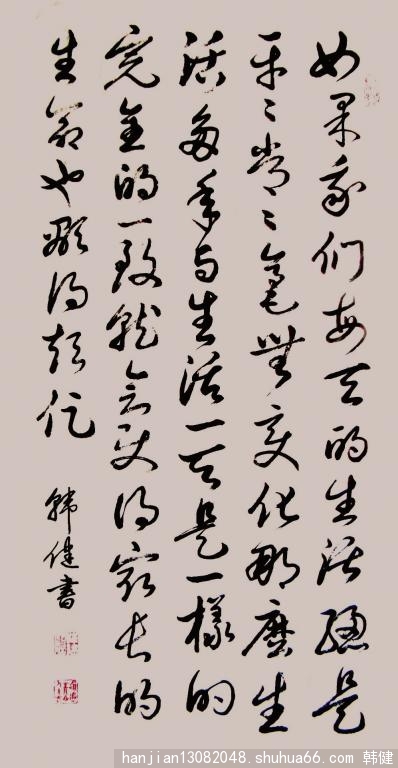 如果我们每天的生活總是
平々常々毫無变化那麽生
活多年与生活一天是一樣的
完全的一致就会使得最长的
生命也顯得短促
韓健書
hanjian13082048.shuhua66.com 韩健